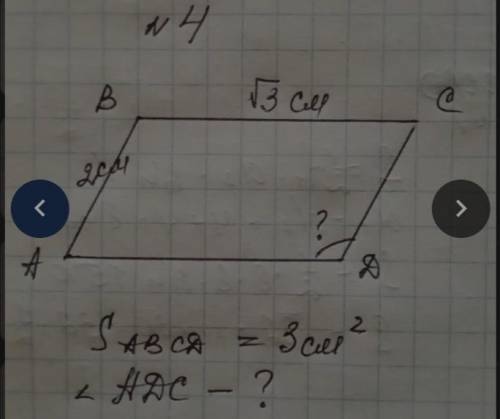 №4
B √3 см C
2см
?
A D
S ABCD = 3см²
∠ ADC - ?